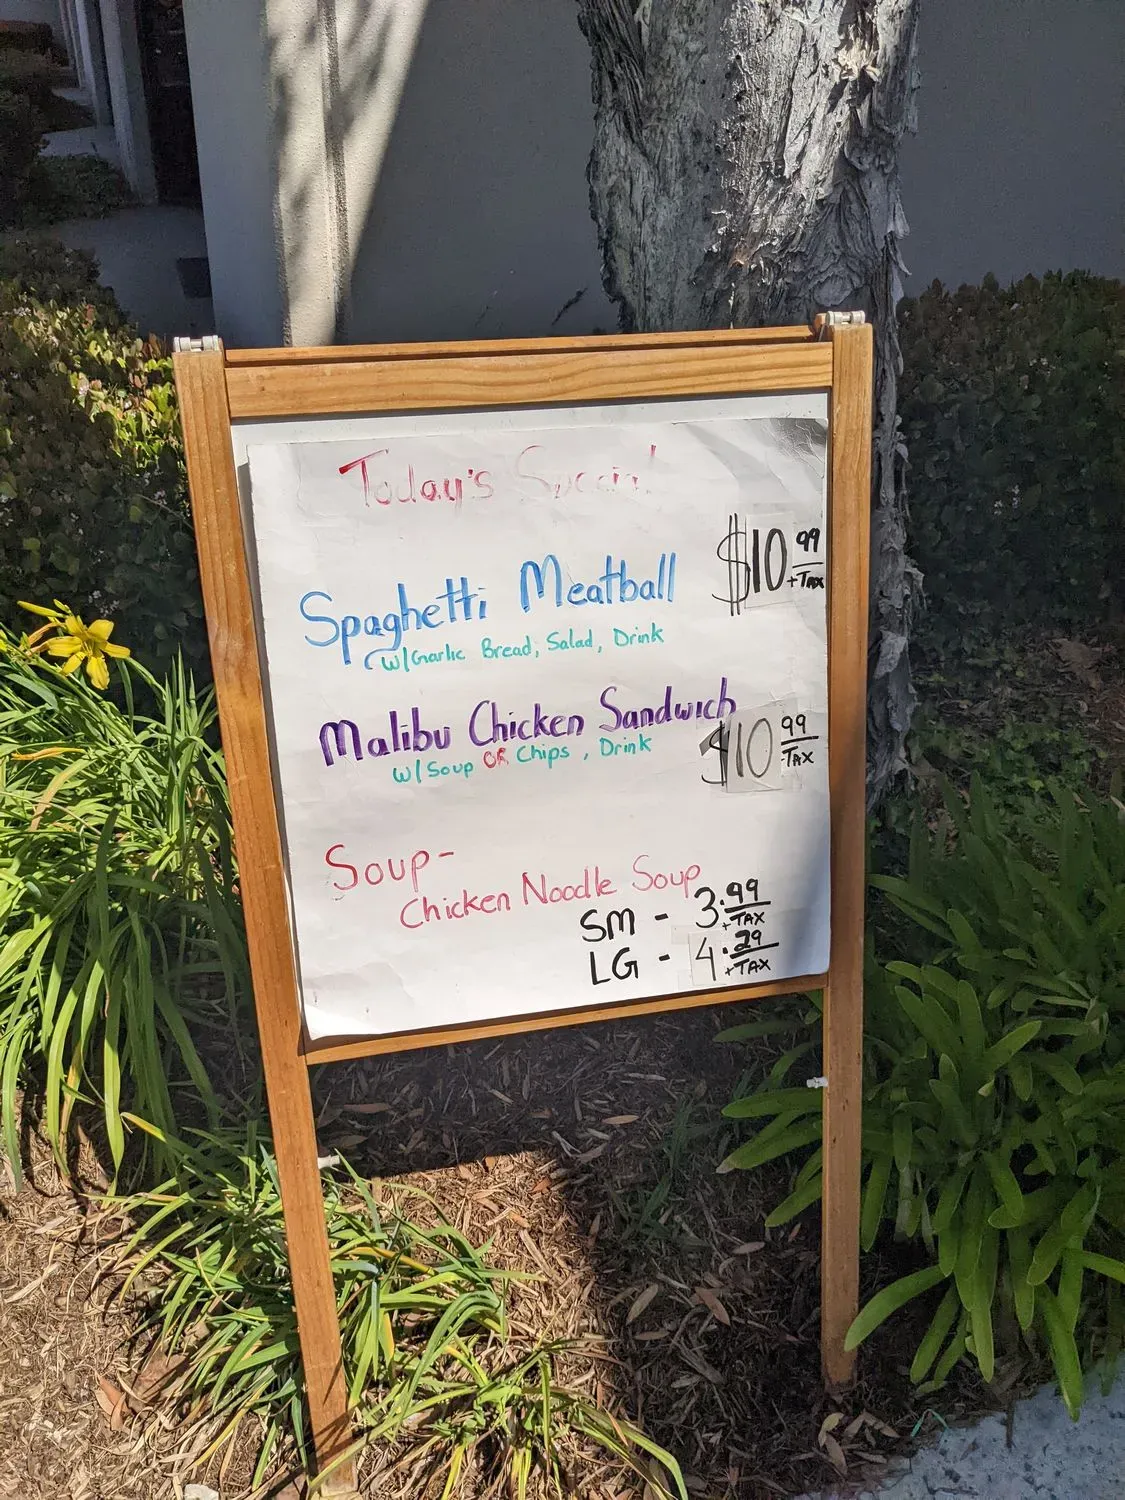 Today's Special
Spaghetti Meatball $10.99 +Tax
w/Garlic Bread, Salad, Drink
Malibu Chicken Sandwich $10.99 +TAX
w/Soup OR Chips, Drink
Soup-
Chicken Noodle Soup
SM - 3.99 +TAX
LG - 4.29 +TAX